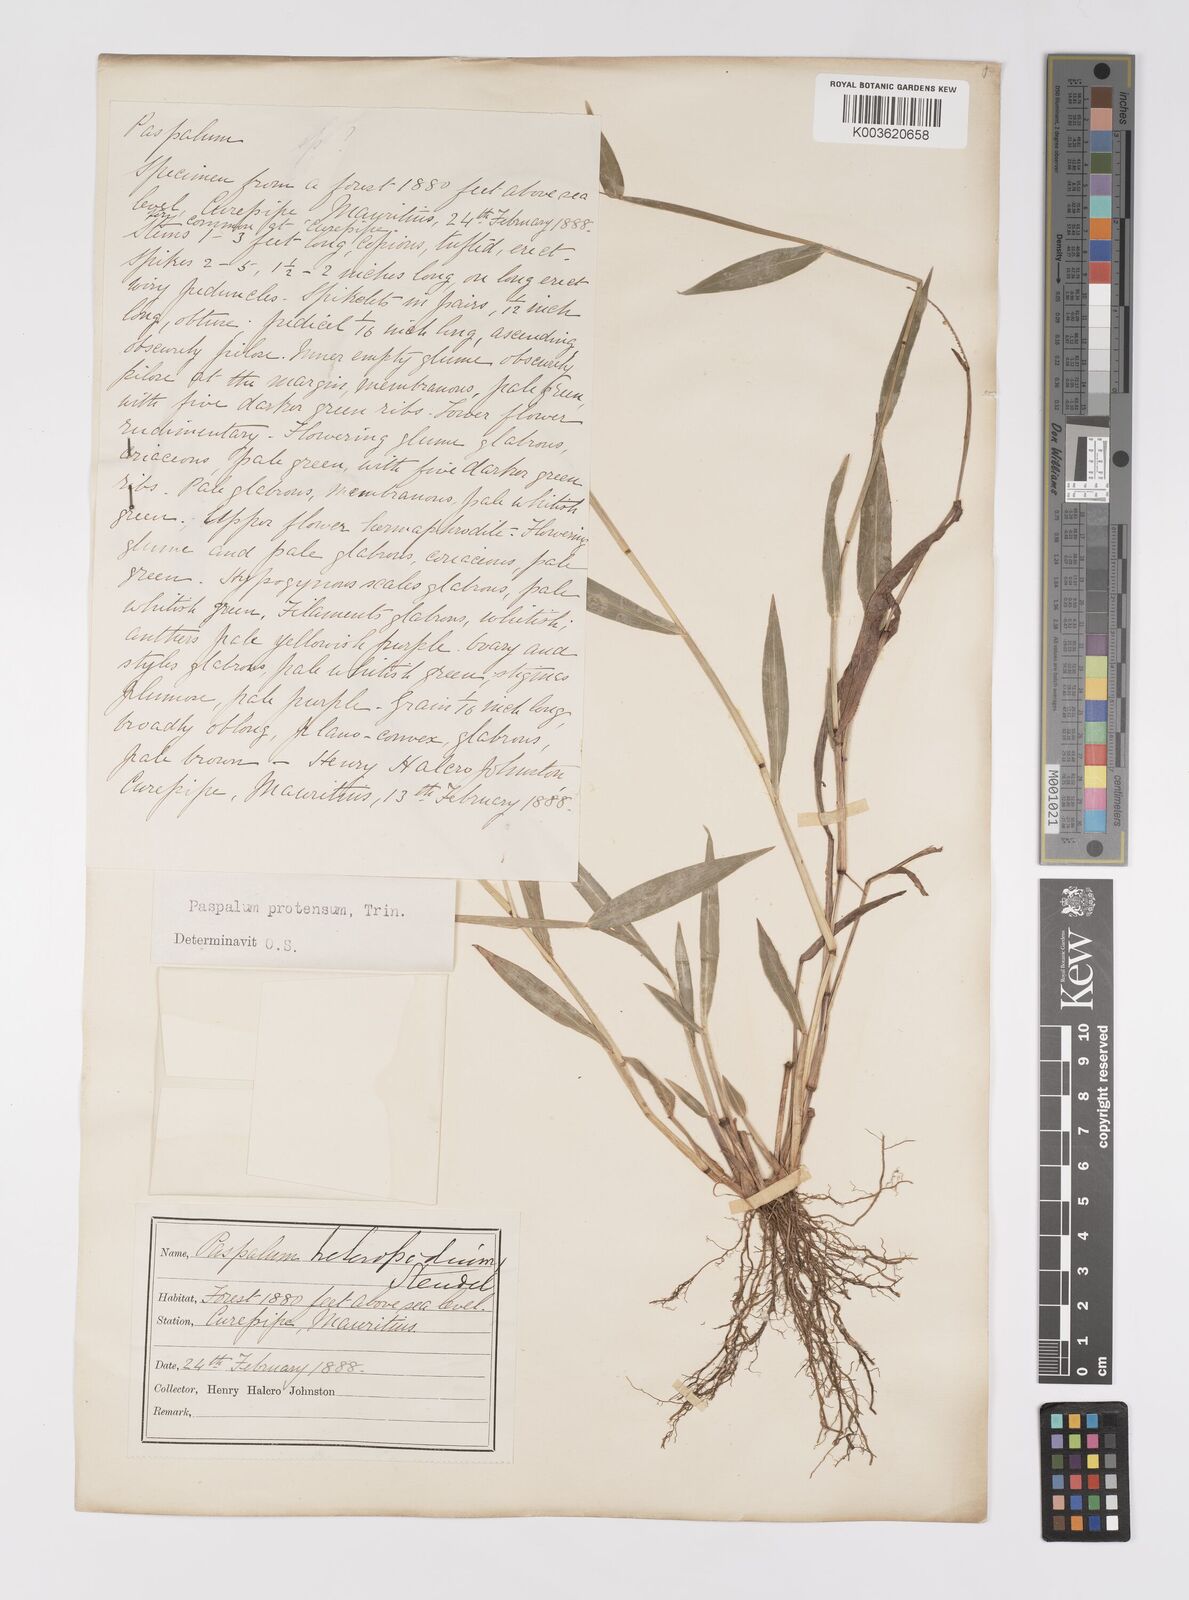 ROYAL BOTANIC GARDENS KEW
K003620658
Paspalum sp?
Specimen from a forest 1880 feet above sea
level, Curepipe, Mauritius, 24th February 1888.
Very common at Curepipe.
Stems 1-3 feet long, copious, tufted, erect-
Spikes 2-5, 1½-2 inches long, on long erect
wiry peduncles. Spikelets in pairs, 1/12 inch
long, obtuse; pedicel 1/16 inch long, ascending
obscurely pilose. Inner empty glume obscurely
pilose at the margin, membranous, pale green,
with five darker green ribs. Lower flower
rudimentary. Flowering glume glabrous,
coriaceous, pale green, with five darker green
ribs. Pale glabrous, membranous, pale whitish
green. Upper flower hermaphrodite - Flowering
glume and pale glabrous, coriaceous, pale
green. Hypogynous scales glabrous, pale
whitish green. Filaments glabrous, whitish;
anthers pale yellowish purple. Ovary and
styles glabrous, pale whitish green, stigmas
plumose, pale purple - Grain 1/16 inch long,
broadly oblong, plano-convex, glabrous,
pale brown - Henry Halcro Johnston
Curepipe, Mauritius, 13th February 1888.
Paspalum protensum, Trin.
Determinavit O.S.
Name, Paspalum heteropodium,
Steudel
Habitat, Forest 1880 feet above sea level.
Station, Curepipe, Mauritius.
Date, 24th February 1888.
Collector, Henry Halcro Johnston
Remark,
inches
centimetres
Don Williams
M001021
Kew
Royal Botanic Gardens
copyright reserved
0 1 2 3 4 5 6 7 8 9 10
cm